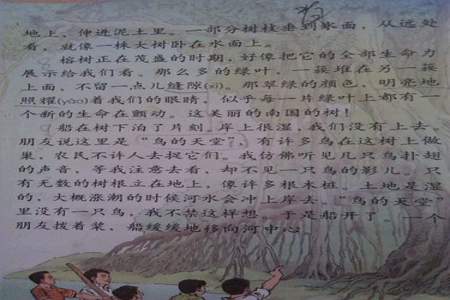 地上，伸进泥土里。一部分树枝垂到水面，从远处
看，就像一株大树卧在水面上。
榕树正在茂盛的时期，好像把它的全部生命力
展示给我们看。那么多的绿叶，一簇堆在另一簇
上面，不留一点儿缝隙(xì)。那翠绿的颜色，明亮地
照耀(yào)着我们的眼睛，似乎每一片绿叶上都有一
个新的生命在颤动。这美丽的南国的树！
船在树下泊了片刻。岸上很湿，我们没有上去。
朋友说这里是“鸟的天堂”，有许多鸟在这树上做
巢，农民不许人去捉它们。我仿佛听见几只鸟扑翅
的声音，等我注意去看，却不见一只鸟的影儿。只
有无数的树根立在地上，像许多根木桩。土地是湿
的，大概涨潮的时候河水会冲上岸去。“鸟的天堂”
里没有一只鸟，我不禁这样想。于是船开了，一个
朋友拨着桨，船缓缓地移向河中心。